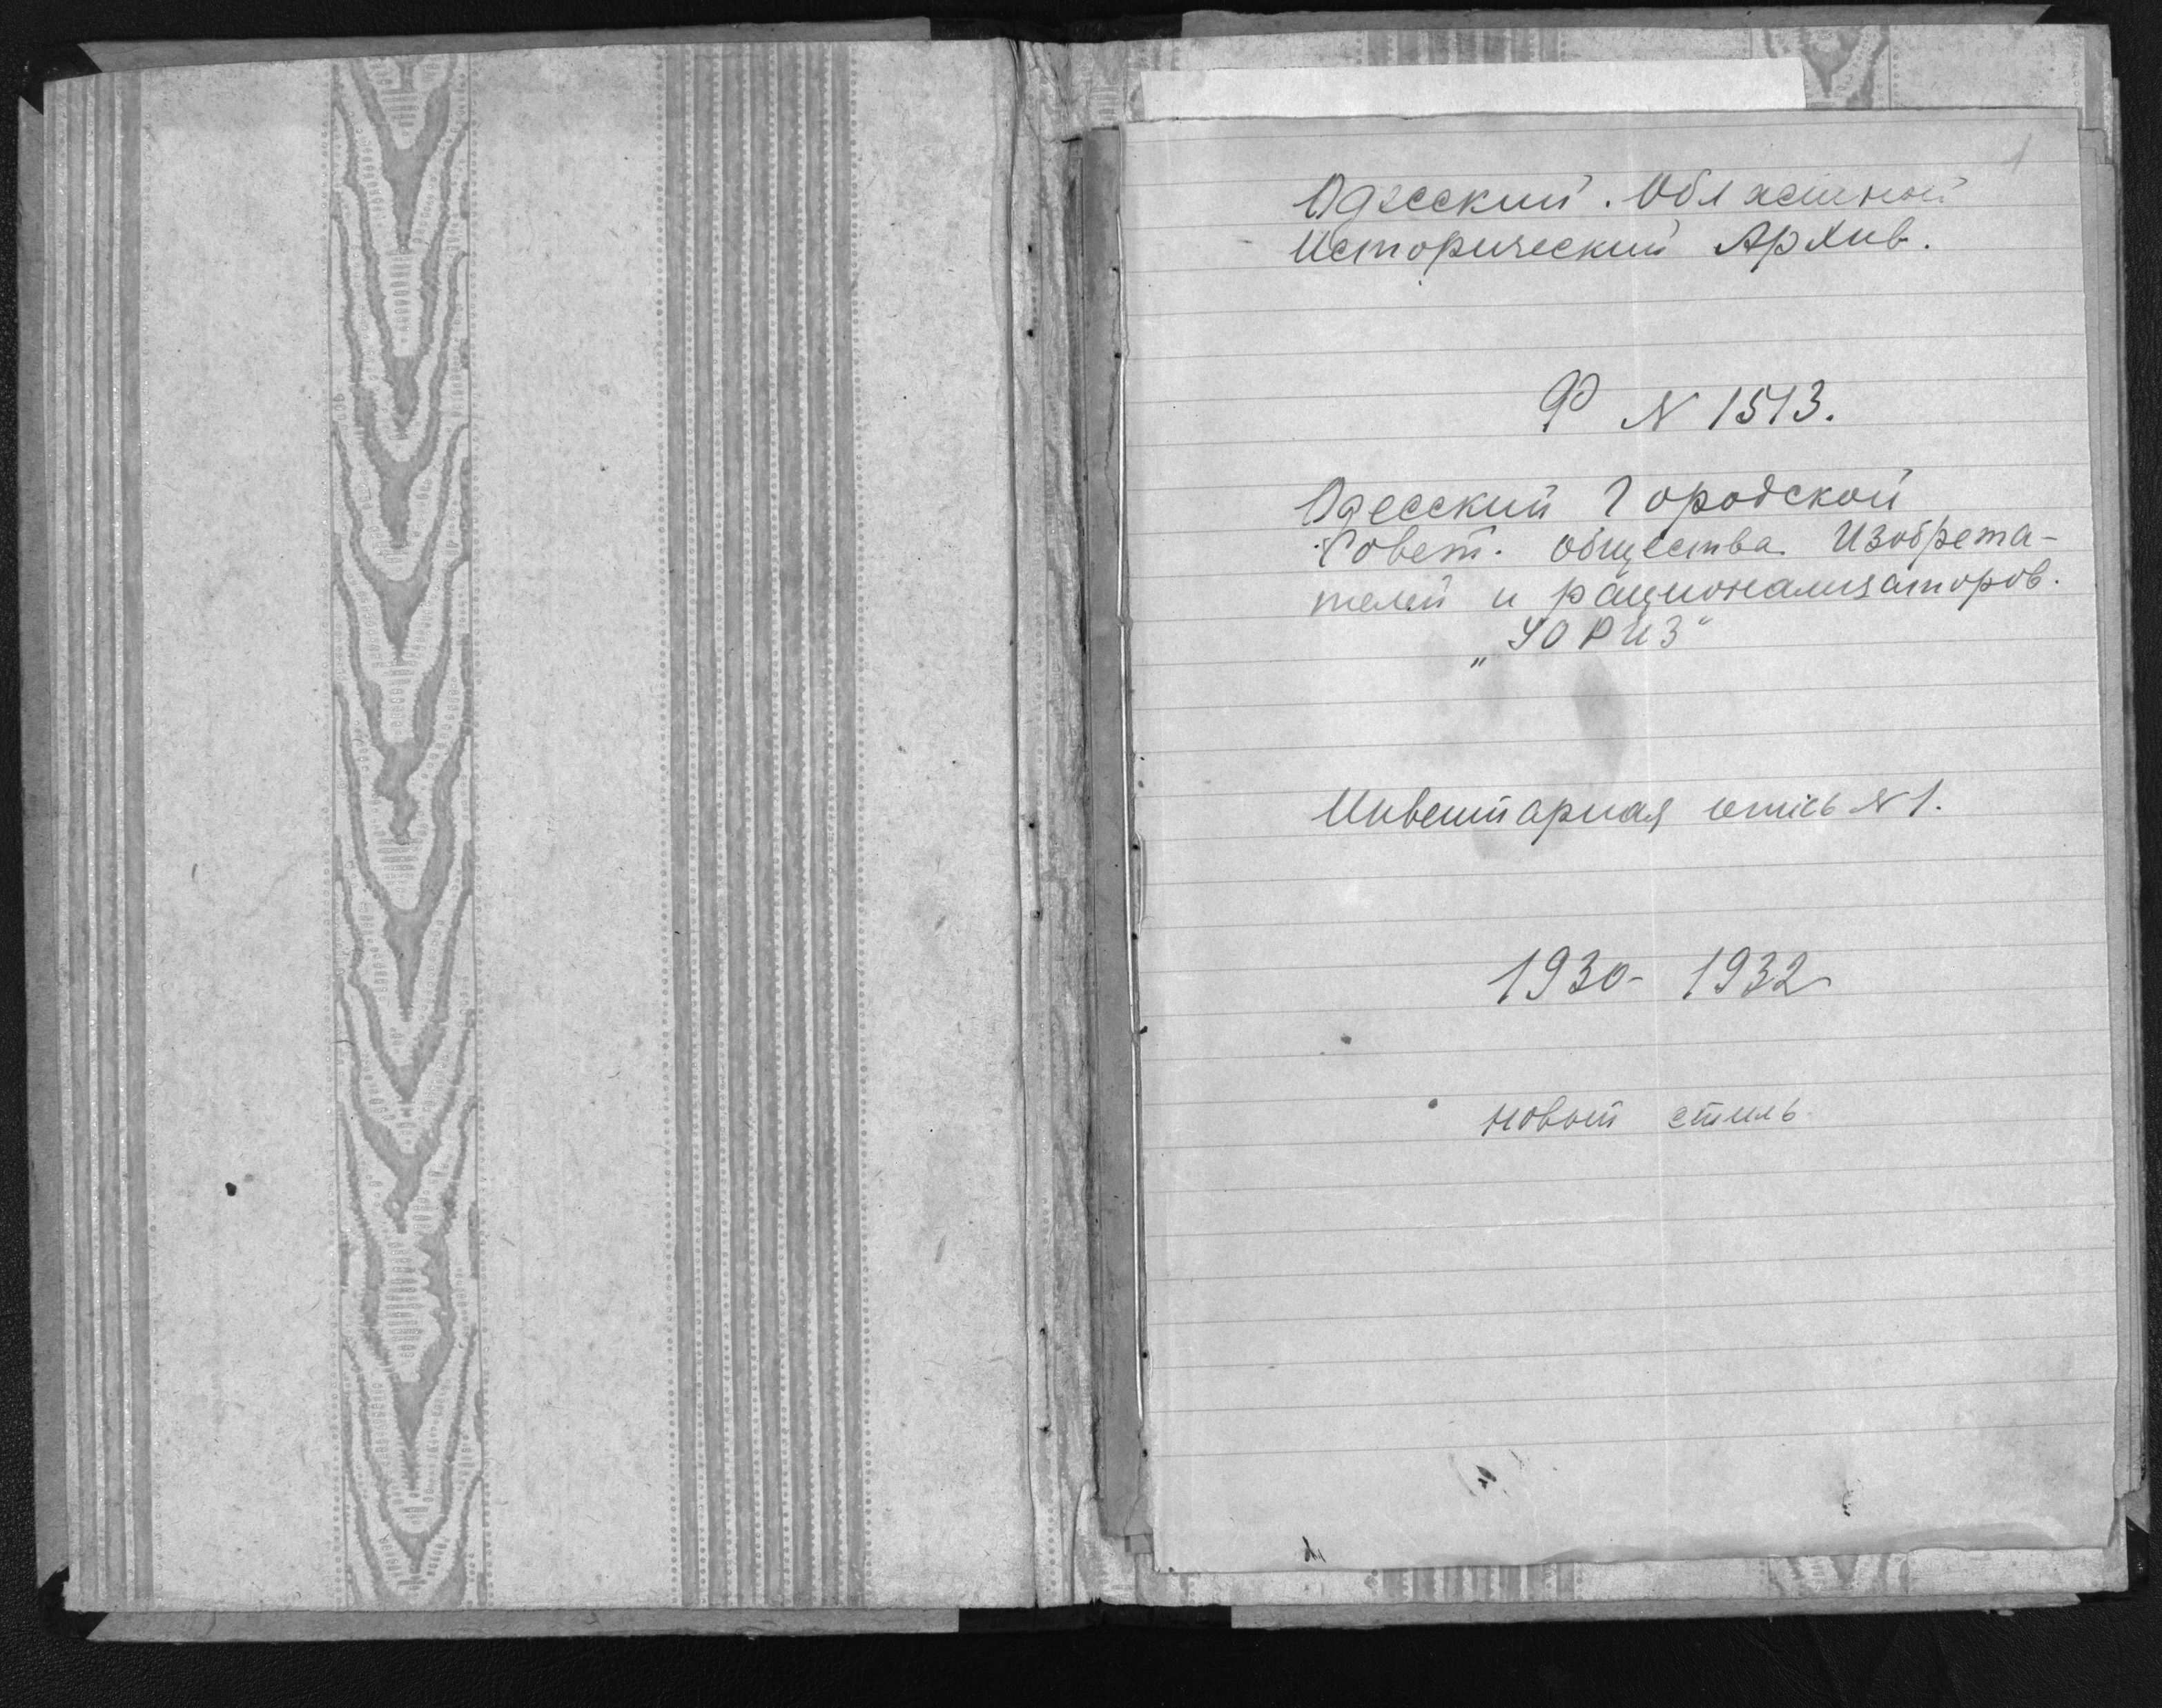 1
Одесский. Областной
Исторический Архив.
Ф N 1513.
Одесский Городской
Совет. общества Изобрета-
телей и рационализаторов.
„УОРИЗ"
Инвентарная опись N 1.
1930- 1932
новый стиль.